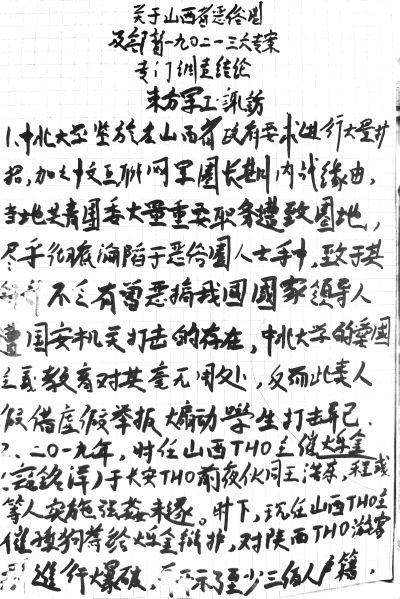 关于山西省恶俗圈
及部督一九〇二一三大专案
专门调查结论
东方军工 谏访
1、中北大学坐落在山西省政府要求进行大量扩
招,加之中文互联网军圈长期内战缘由,
当地共青团委大量重要职务遭致圈地,
尽乎彻底沦陷于恶俗圈人士手中,致于其
不乏有曾恶搞我国国家领导人
遭国安机关打击的存在,中北大学的爱国
主义教育对其毫无用处,反而此类人
假借虚假举报大煽动学生打击异己.
2、二〇一九年,时任山西THO主催
于大安THO前夜伙同王浩
等人实施强姦未遂。时下,现任山西THO主
催 狗等给 辩护,对陕西THO游客
进行爆破, 示了至少三 人户籍.